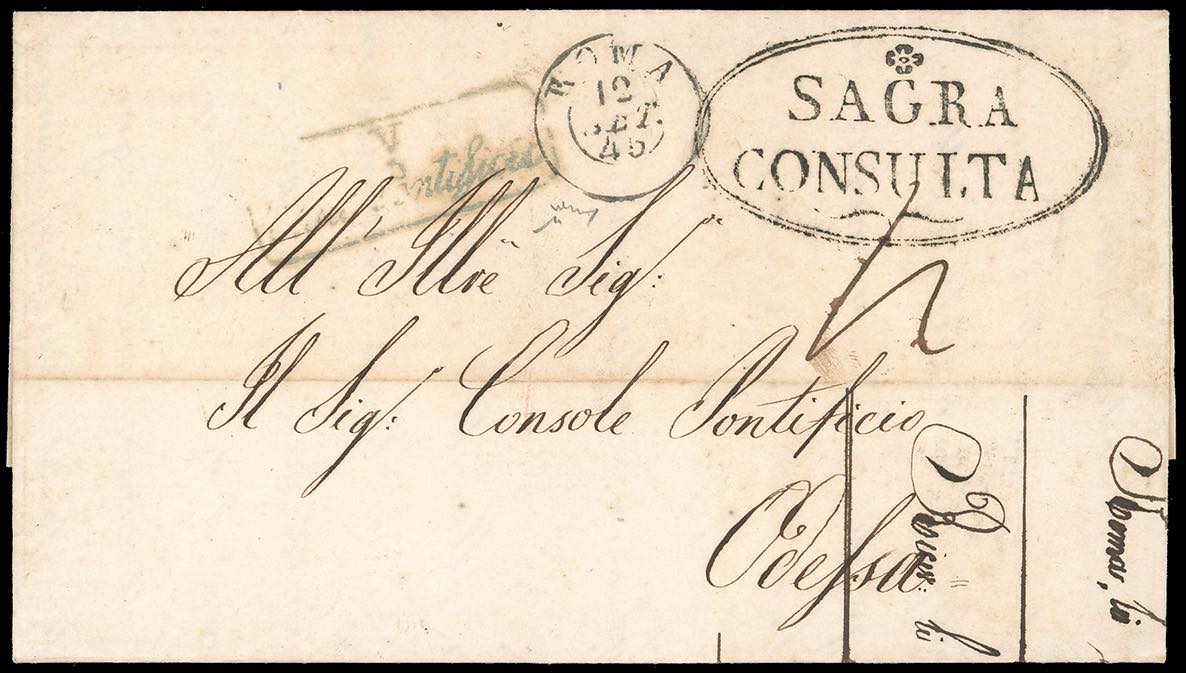 ROMA
12
SET.
45
SAGRA
CONSULTA
V
Pontificio
All' Illre Sig:
Il Sig: Console Pontificio
Odessa
Roma, li